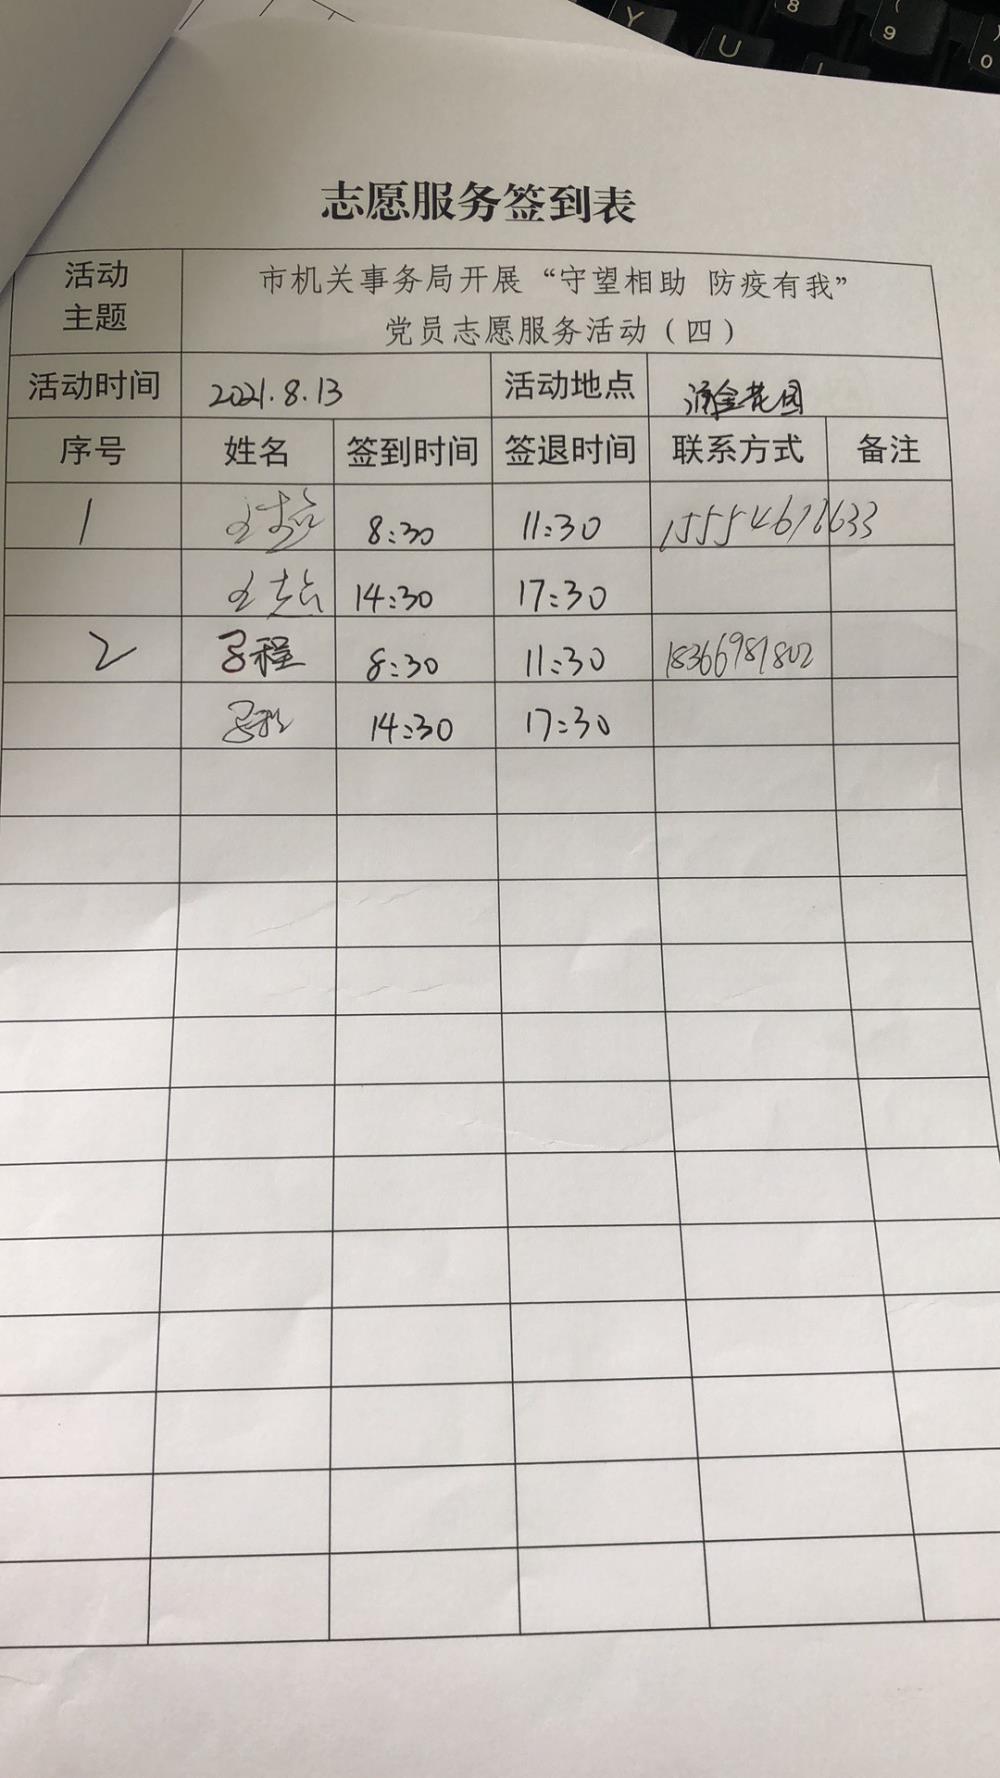 志愿服务签到表
活动主题 市机关事务局开展“守望相助 防疫有我”
党员志愿服务活动（四）
活动时间 2021.8.13 活动地点 涌金花园
序号 姓名 签到时间 签退时间 联系方式 备注
1 8:30 11:30
14:30 17:30
2 程 8:30 11:30 18366981802
14:30 17:30
Y U 8 ( 9 ) 0